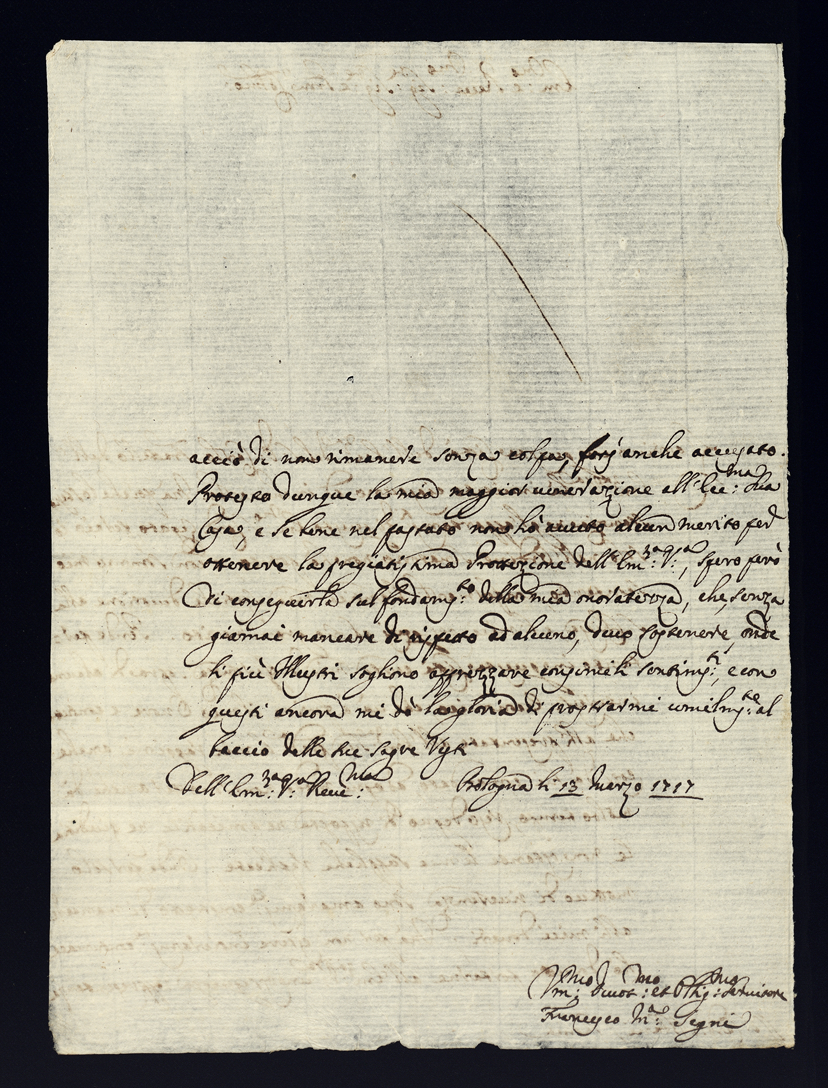 acciò di non rimanere senza colpa, forsi anche accusato.
Protesto dunque la mia maggior venerazione all' Ecc:ma Sua
Casa, e se bene nel passato non hò auuto alcun merito per
ottenere la pregiatissima Protezione dell' Em:za V:a, spero però
di conseguirla sul fondam:to della mia onoratezza, che, senza
giamai mancare di rispetto ad alcuno, deuo sostenere, onde
li più Illustri sogliono apprezzare consimili sentim:ti, e con
questi ancora mi dò la gloria di prostrarmi umilm:te al
baccio delle sue sagre Vesti
Dell' Em:za V:a Reue:ma Bologna li 13 Marzo 1717
Um:mo Deuot:mo et Oblig:mo Seruitore
Francesco M:a Segni